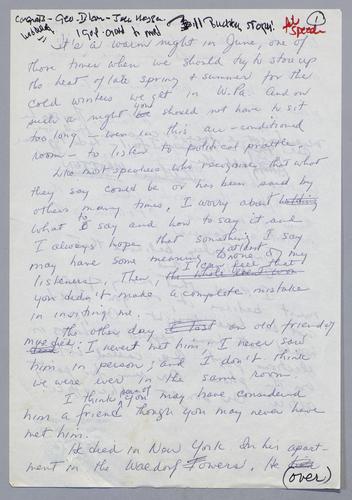 Congrats - Geo. Blem - Jack Hogga- Bill Burden story!
1st Speech
1
It's a warm night in June, one of
those times when we should try to store up
the heat of late spring + summer for the
cold winters we get in W.Pa. And on
such a night you should not have to sit
too long - even in this air-conditioned
room - to listen to political prattle.
Like most speakers who recognize that what
they say could be or has been said by
others many times, I worry about
what to say and how to say it and
I always hope that something I say
may have some meaning to at least one of my
listeners. Then, I can feel that
you didn't make a complete mistake
in inviting me.
The other day an old friend of
mine died; I never met him; I never saw
him in person; and I don't think
we were ever in the same room.
I think some of you may have considered
him a friend though you may never have
met him.
He died in New York in his apart-
ment in the Waldorf Towers. He
(over)